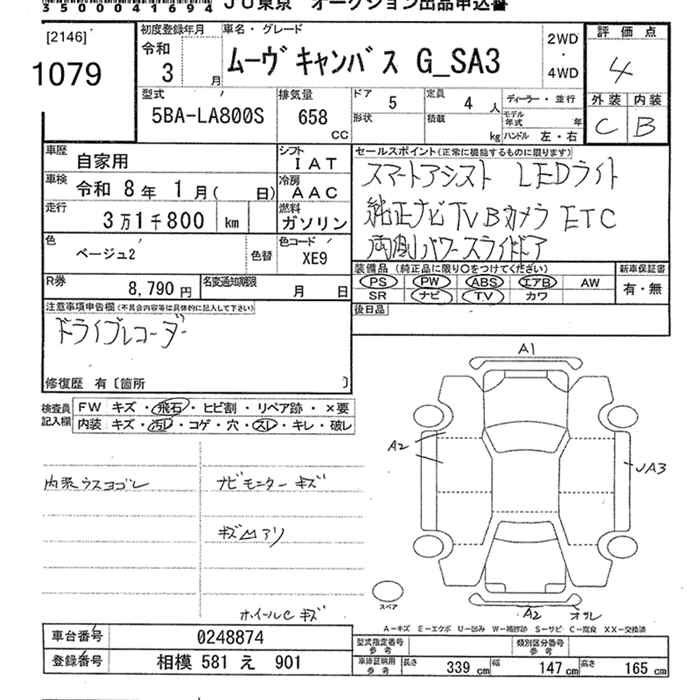 350004 1694 JU東京 オークション出品申込書
[2146]
1079
初度登録年月
令和
3 月
車名・グレード
ムーヴキャンバス G_SA3
2WD
・
4WD
評価点
4
外装 内装
C B
型式
5BA-LA800S
排気量
658
CC
ドア
5
定員
4 人
形状
積載
kg
ディーラー・並行
モデル年式 年
ハンドル 左・右
車歴
自家用
シフト
IAT
車検
令和 8年 1月( 日)
冷房
AAC
走行
3万1千800 km
燃料
ガソリン
色
ベージュ2
色替
色コード
XE9
R券
8,790 円
名変通知期限
月 日
セールスポイント(正常に機能するものに限ります)
スマートアシスト LEDライト
純正ナビTVBカメラ ETC
両側パワースライドドア
装備品(純正品に限り○をつけてください)
PS PW ABS エアB AW
SR ナビ TV カワ
新車保証書
有・無
後日品
注意事項申告欄(不具合内容等は具体的に記入して下さい)
ドライブレコーダー
修復歴 有〔箇所 〕
検査員
記入欄
FW キズ・飛石・ヒビ割・リペア跡・×要
内装 キズ・汚レ・コゲ・穴・スレ・キレ・破レ
内装ウスヨゴレ
ナビモニターキズ
キズ凹アリ
ホイールCキズ
A1
A2
UA3
A2 オサレ
スペア
A-キズ E-エクボ U-凹み W-補修跡 S-サビ C-腐食 XX-交換済
車台番号
0248874
登録番号
相模 581 え 901
型式指定番号
参考
類別区分番号
参考
車庫証明用
参考
長さ 339 cm
幅 147 cm
高さ 165 cm